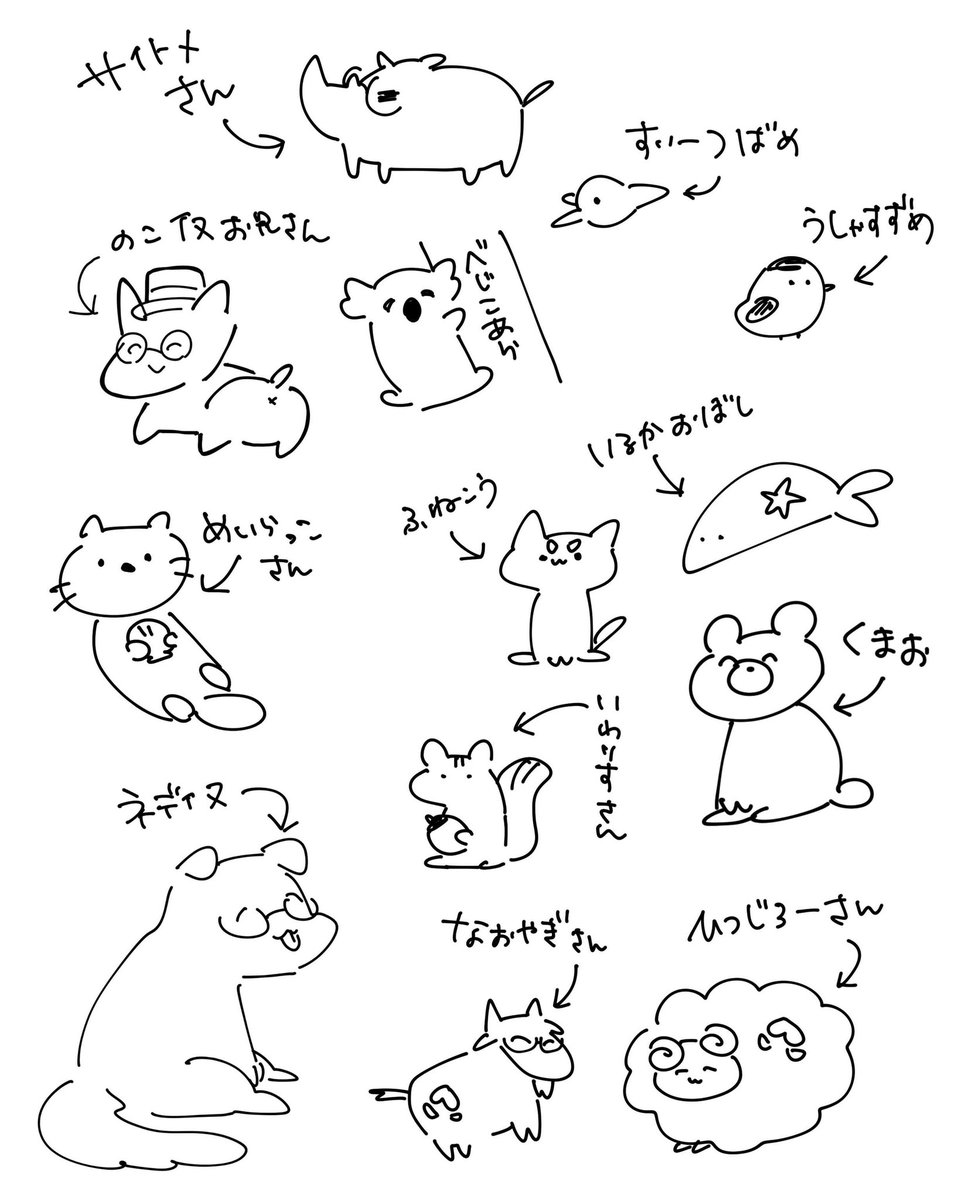 サイトメ
さん
すぃーつばめ
うしゃすずめ
のこイヌお兄さん
べじこあら
いるかおぼし
ふねこう
めいらっこ
さん
くまお
いわりすさん
ネディヌ
なおやぎさん
ひつじろーさん